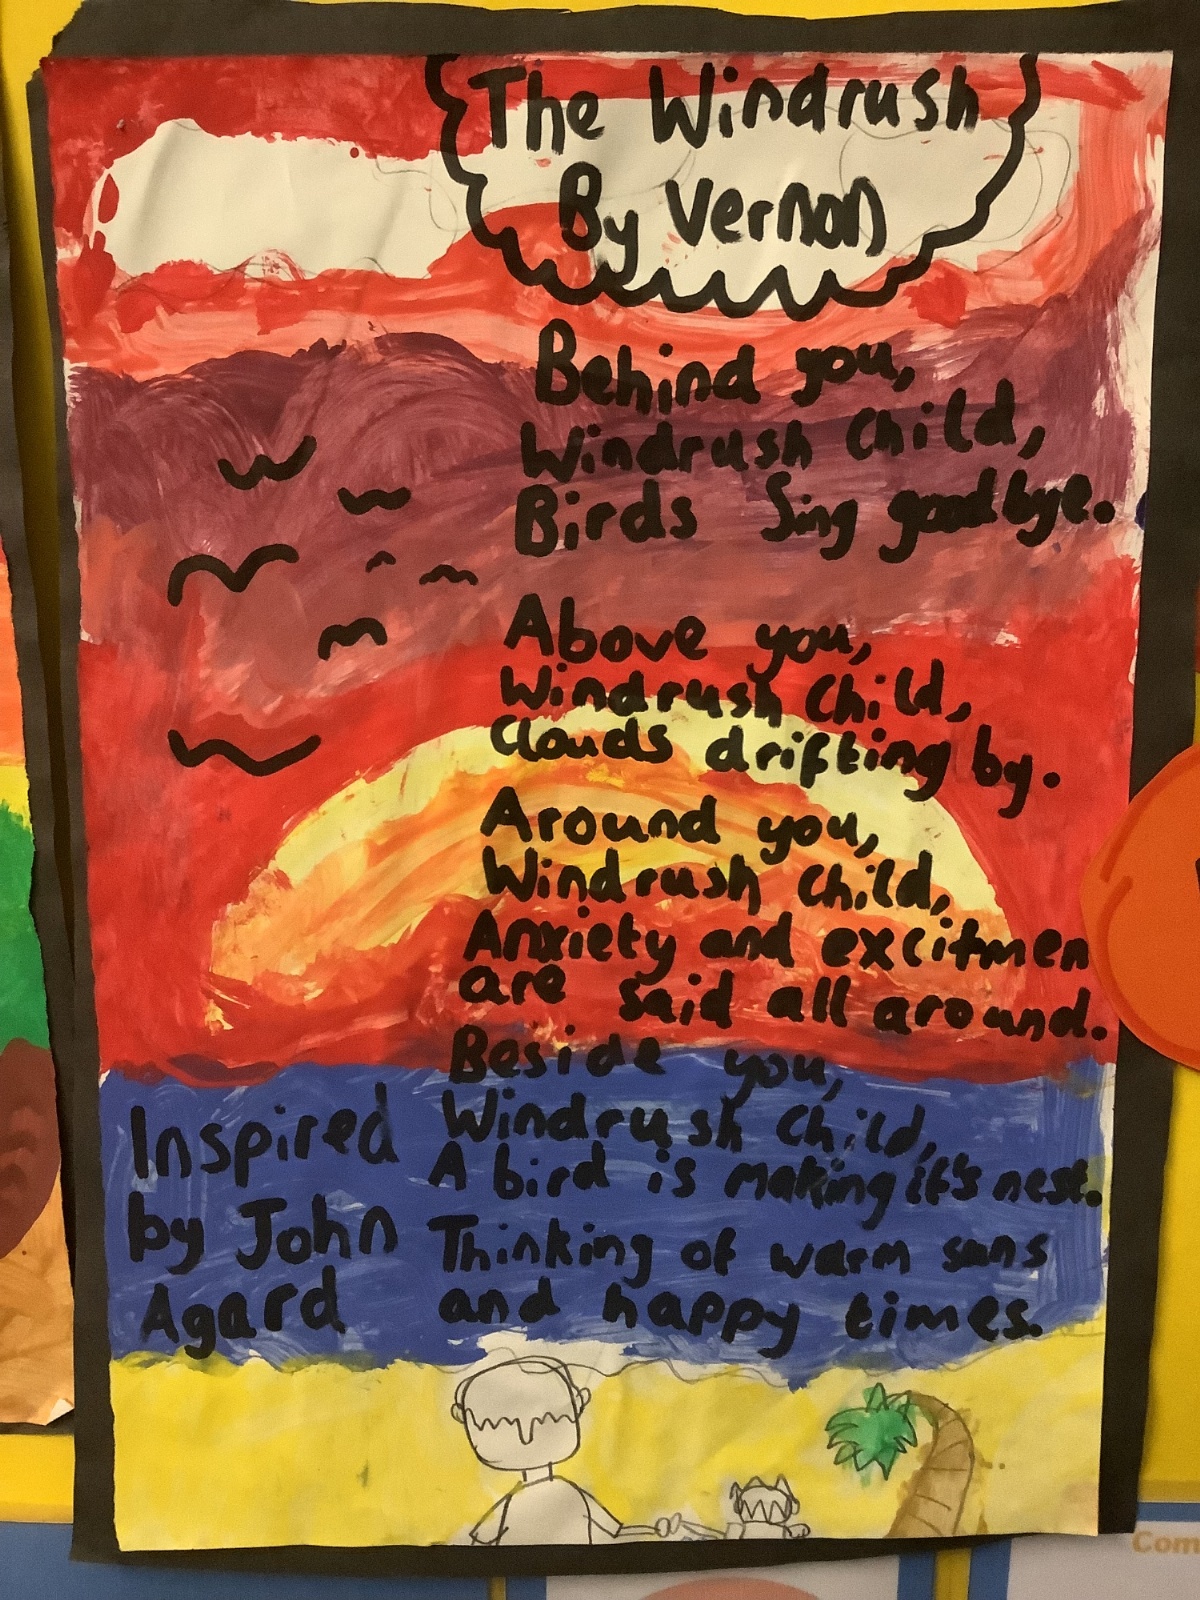 The Windrush
By Vernon
Behind you,
Windrush Child,
Birds Sing goodbye.
Above you,
Windrush Child,
Clouds drifting by.
Around you,
Windrush child,
Anxiety and excitmen
are said all around.
Beside you,
Windrush Child,
A bird is making it's nest.
Thinking of warm suns
and happy times.
Inspired
by John
Agard
Com